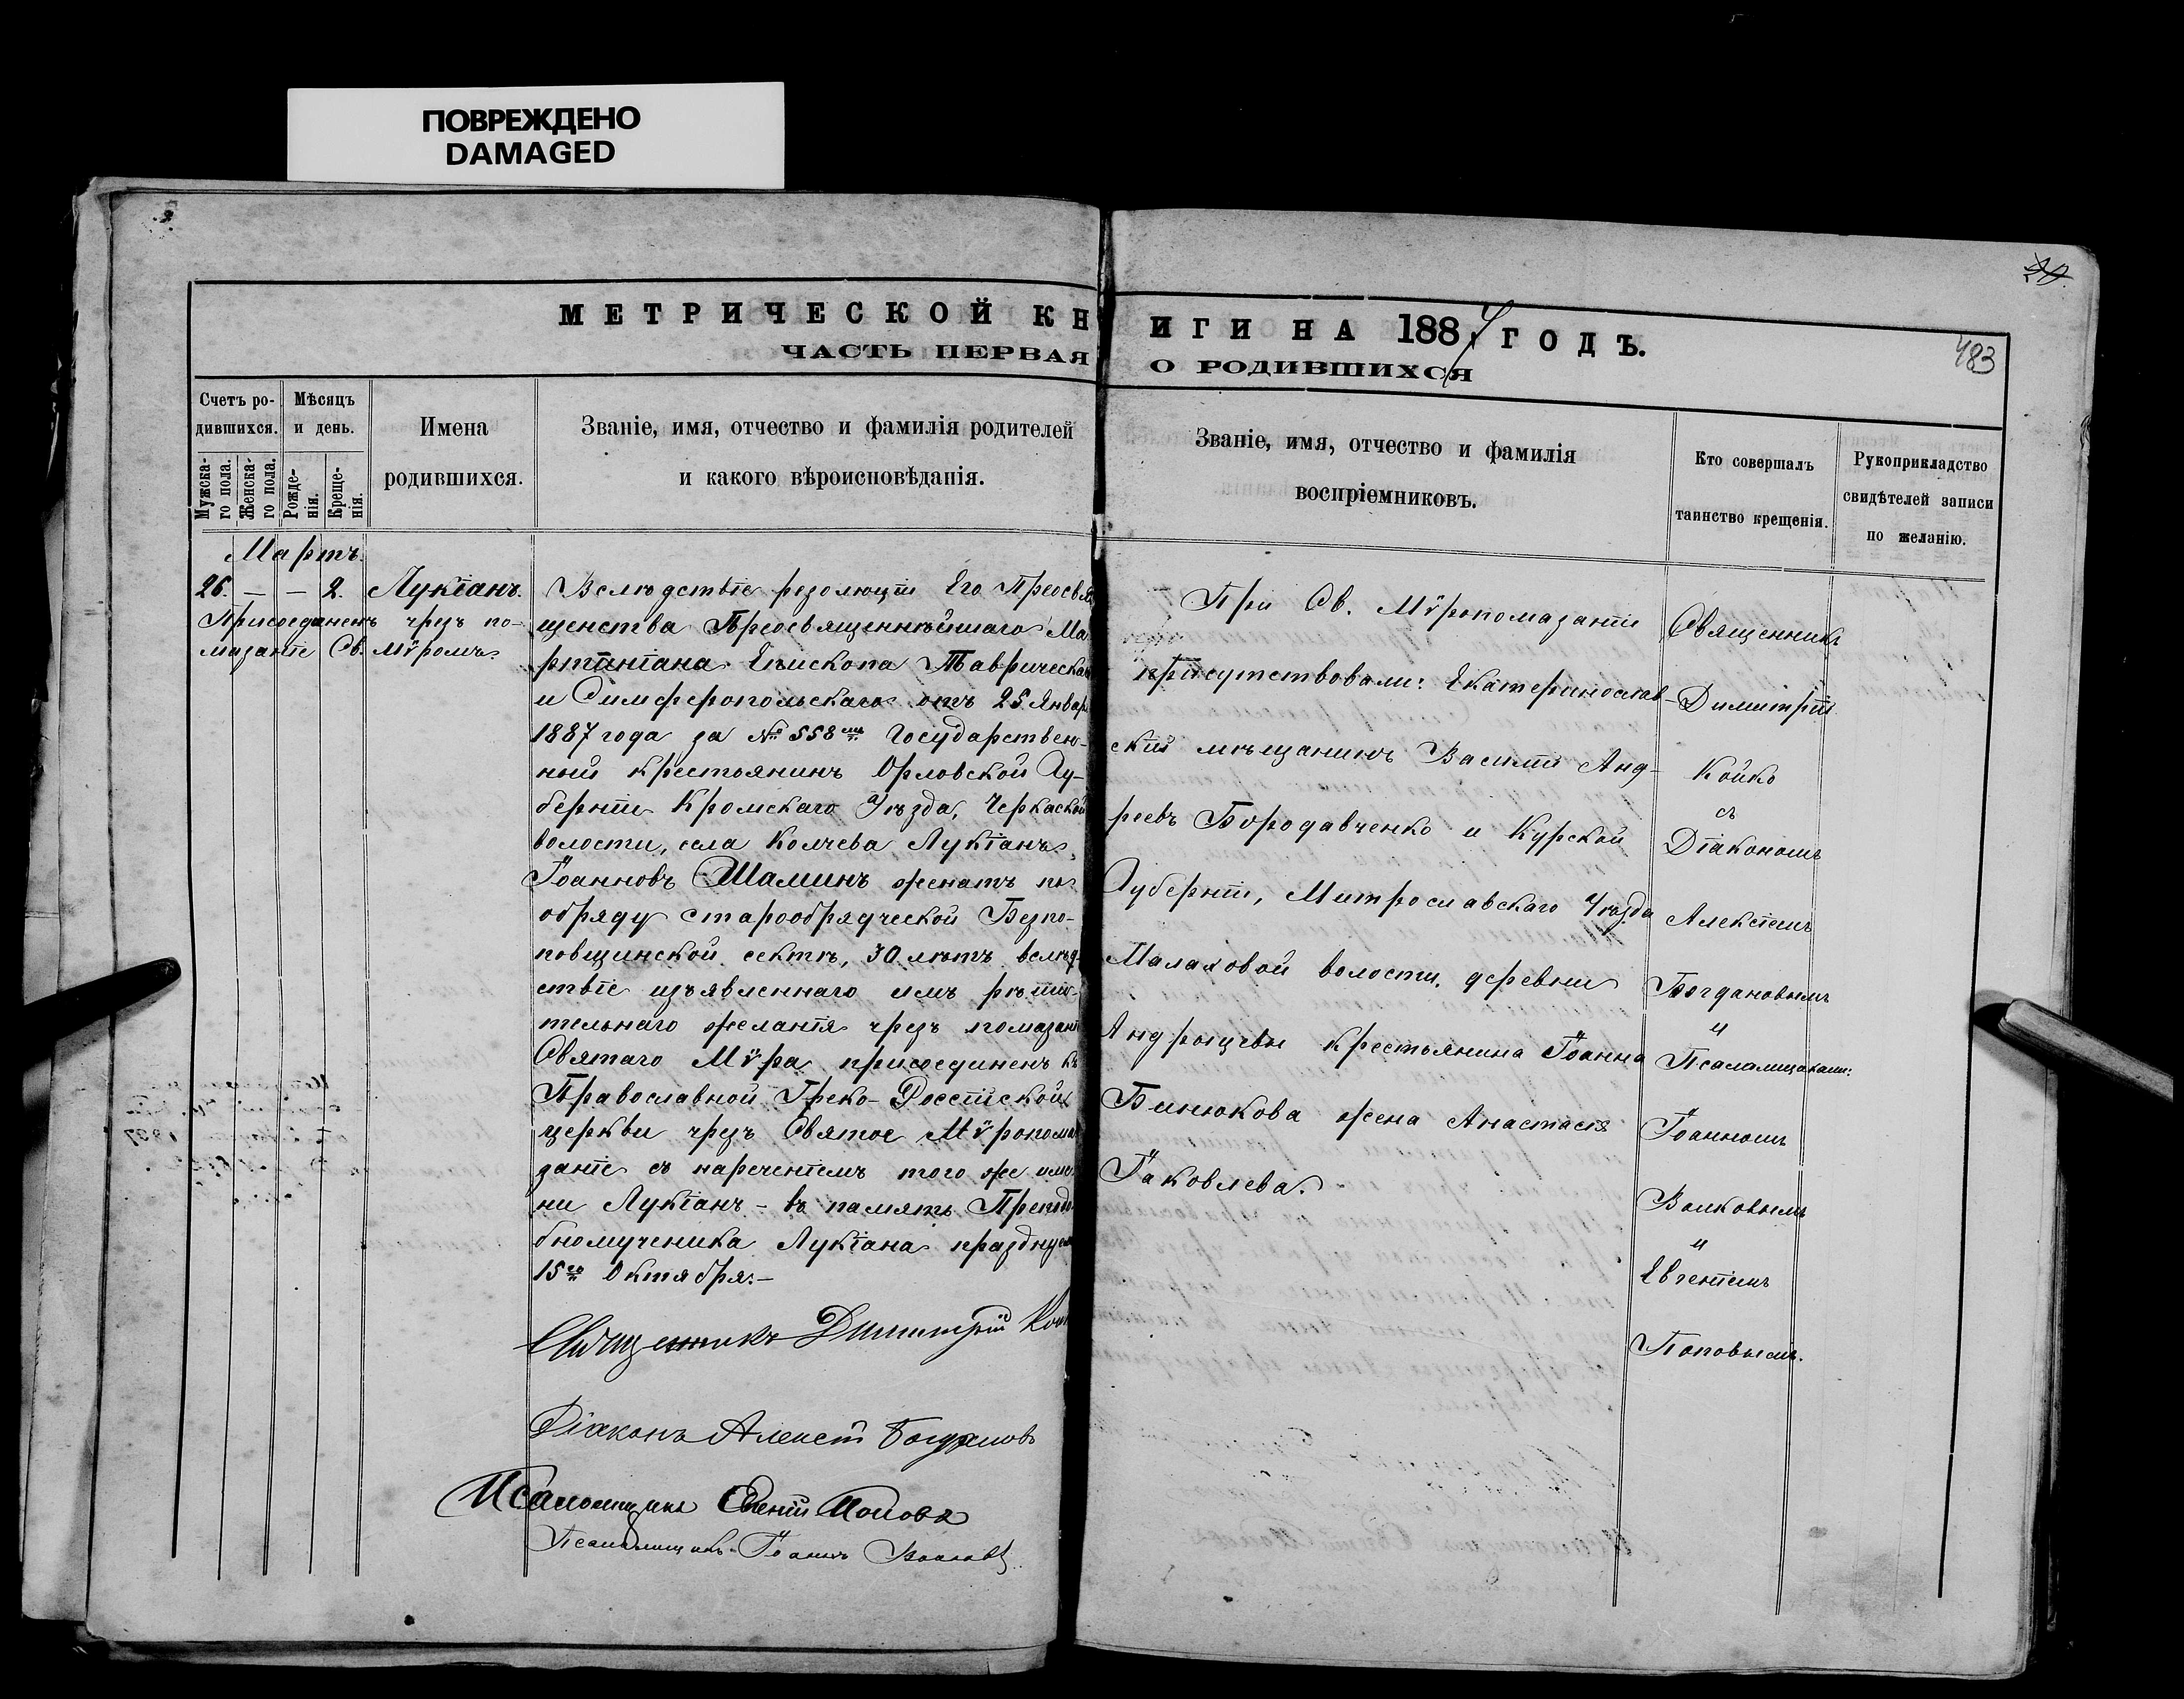 ПОВРЕЖДЕНО
DAMAGED
МЕТРИЧЕСКОЙ КНИГИ НА 1887 ГОДЪ.
ЧАСТЬ ПЕРВАЯ О РОДИВШИХСЯ
483
Счетъ ро-
дившихся.
Мужска-
го пола.
Женска-
го пола.
Мѣсяцъ
и день.
Рожде-
нія.
Креще-
нія.
Имена
родившихся.
Званіе, имя, отчество и фамилія родителей
и какого вѣроисповѣданія.
Званіе, имя, отчество и фамилія
воспріемниковъ.
Кто совершалъ
таинство крещенія.
Рукоприкладство
свидѣтелей записи
по желанію.
Мартъ.
26. — — 2. Лукіанъ.
Присоединенъ чрезъ по-
мазаніе Св. мѵромъ.
Вслѣдствіе резолюціи Его Преосвя
щенства Преосвященнѣйшаго Ма
ртиніана Епископа Таврическаго
и Симферопольскаго отъ 25 Январ
1887 года за № 558мъ Государствен-
ный крестьянинъ Орловской Гу-
берніи Кромскаго Уѣзда, Черкаской
волости, села Колчева Лукіанъ
Іоанновъ Шаминъ женатъ по
обряду старообрядческой Безпо-
повщинской сектѣ, 30 лѣтъ вслѣд-
ствіе изъявленнаго имъ рѣши-
тельнаго желанія чрезъ помазані
Святаго Мѵра присоединенъ къ
Православной Греко-Россійской
церкви чрезъ Святое Мѵропома
заніе съ нареченіемъ того же име
ни Лукіанъ - въ память Преподо
бномученика Лукіана празднуем
15го Октября.-
Священникъ Димитрій Кой
Діаконъ Алексій Богдановъ
Псаломщикъ Евгеній Поповъ
Псаломщикъ Іоаннъ Волковъ
При Св. Мѵропомазаніи
присутствовали: Екатеринослав-
скій мѣщанинъ Василій Анд-
реевъ Бородавченко и Курской
Губерніи, Митрославскаго Уѣзда
Малаховой волости, деревни
Андрющевы крестьянина Іоанна
Бинюкова жена Анастасія
Іаковлева.
Священникъ
Димитрій
Койко
съ
Діакономъ
Алексіемъ
Богдановымъ
и
Псаломщиками:
Іоанномъ
Волковымъ
и
Евгеніемъ
Поповымъ.